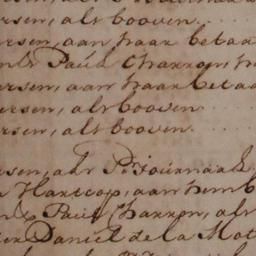 rsen, als booven
ersen, aan haar betaa
Paul Charron, h
ersen, aan haar betaa
ersen, als booven
rsen, als booven
rsen, als P. Journaal
Hartcop, aan hem b
Paul Charron, als
Daniel de la Mot